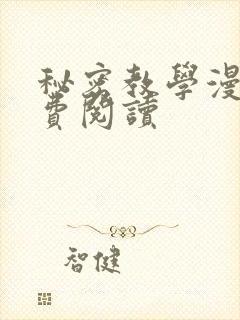 秘密教學漫
費閱讀
智健